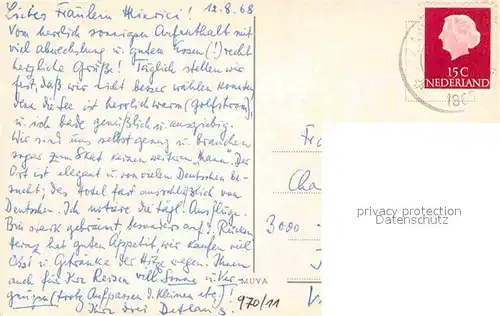 Liebes Fräulein Hinrici! 12.8.68
Vom herrlich sonnigen Aufenthalt mit
viel Abwechslung u. gutem Essen (!) recht
herzliche Grüße! Täglich stellen wir
fest, daß wir nicht besser wählen konnten,
denn die See ist herrlich warm (Golfstrom),
u. ich bade genüßlich u. ausgiebig.
Wir sind uns selbst genug u. brauchen
sogar zum Skat keinen weiteren "Mann". Der
Ort ist elegant u. von vielen Deutschen be-
sucht; das Hotel fast ausschließlich von
Deutschen. Ich notiere die tägl. Ausflüge.
Bin stark gebräunt, besonders auf'm Rücken
hat guten Appetit, wir kaufen viel
Obst u. Getränke der Hitze wegen. Ihnen
auch für Ihre Reisen viel Sonne u. Ver-
gnügen (trotz Aufpassen d. Kleinen etc.)!
Ihre drei
15 C
NEDERLAND
Fr
Cha
3000
V
MUVA
970/11
privacy protection
Datenschutz